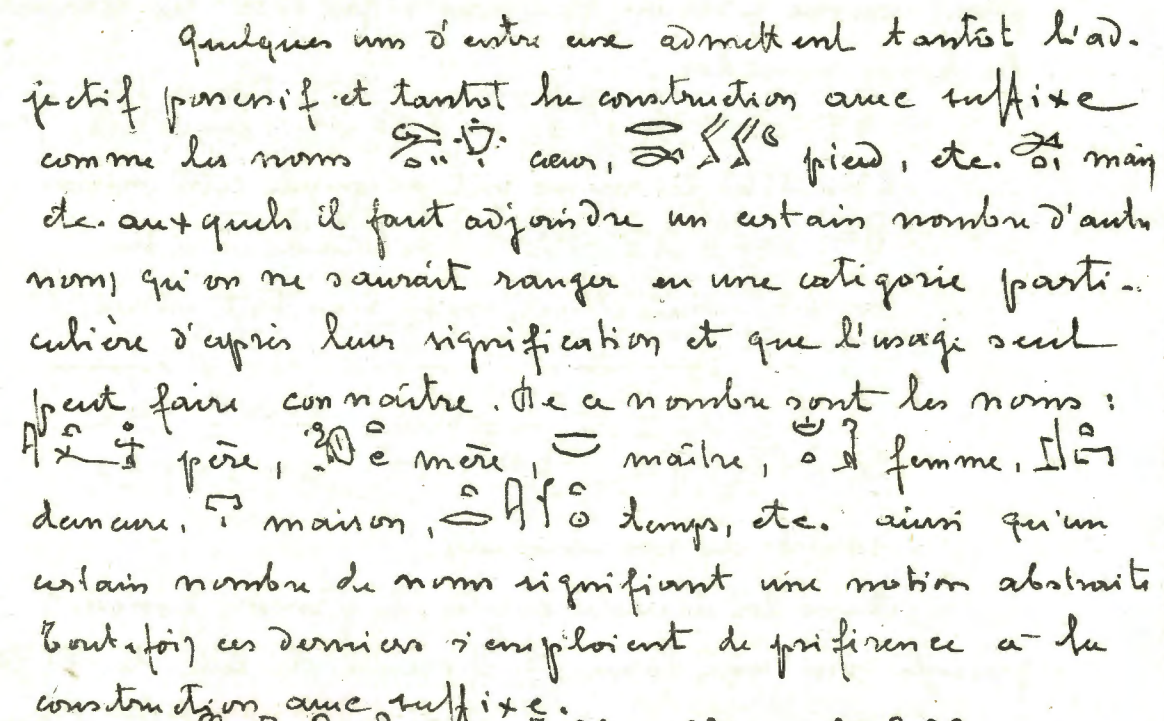 Quelques uns d'entre eux admettent tantôt l'ad-
jectif possessif et tantôt la construction avec suffixe
comme les noms cœur, pied, etc. main
etc. auxquels il faut adjoindre un certain nombre d'autre
noms qu'on ne saurait ranger en une catégorie parti-
culière d'après leur signification et que l'usage seul
peut faire connaître. De ce nombre sont les noms :
père, mère, maître, femme,
demeure, maison, temps, etc. ainsi qu'un
certain nombre de noms signifiant une notion abstraite
Toutefois ces derniers s'emploient de préférence à la
construction avec suffixe.